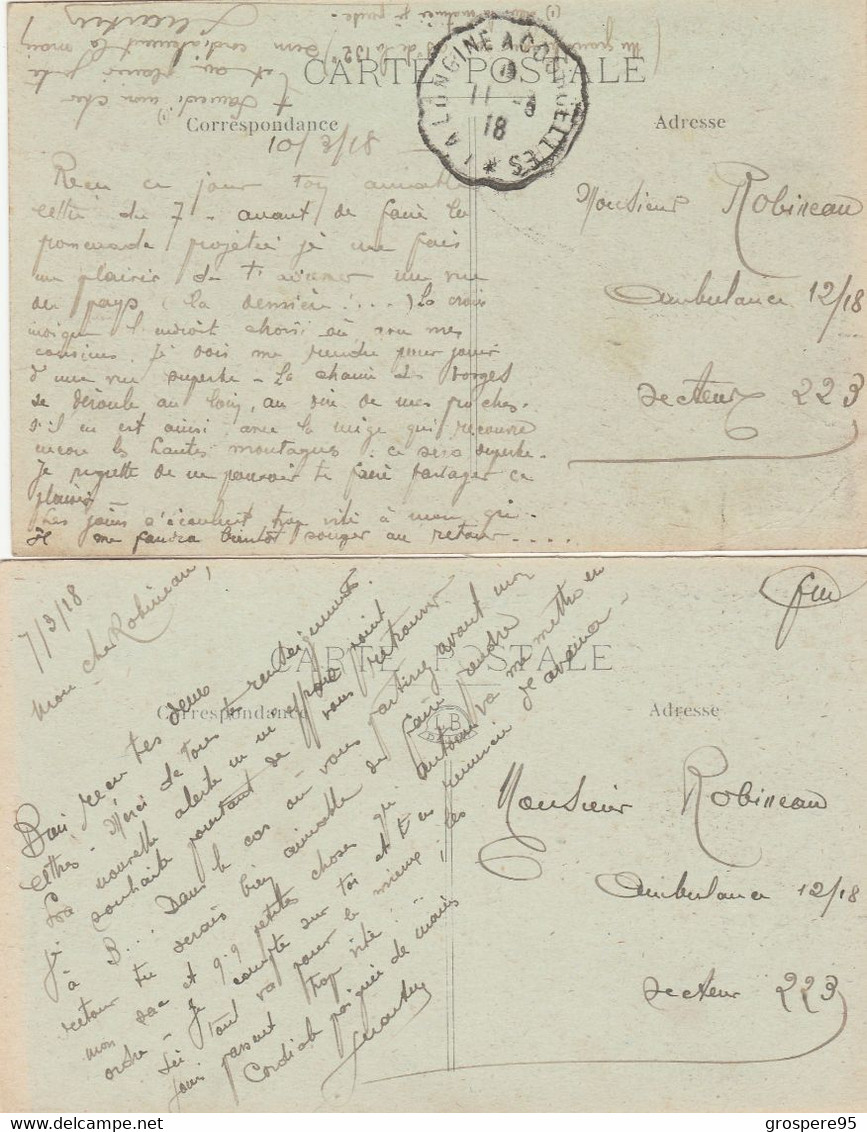 CARTE POSTALE
Correspondance
Adresse
LA LONGINE A CORBENAY
11 - 3
18
10/3/18
Reçu ce jour ton aimable
lettre du 7 - avant de faire la
promenade projetée je me fais
un plaisir de t'adresser une vue
du pays (la dernière !...) La croix
indique l'endroit choisi où avec mes
cousines je dois me rendre pour jouir
d'une vue superbe - La chaine des Vosges
se déroule au loin, au dire de mes proches.
S'il en est ainsi avec la neige qui recouvre
encore les hautes montagnes ce sera superbe.
Je regrette de ne pouvoir te faire partager ce
plaisir
Les jours s'écoulent trop vite à mon gré.
Il me faudra bientôt songer au retour.....
à samedi mon cher
et au plaisir
cordialement la main
Monsieur Robineau
Ambulance 12/18
Secteur 223
CARTE POSTALE
Correspondance
Adresse
LB
fm
7/3/18
Mon cher Robineau,
Bien reçu tes deux
lettres - Merci de tous tes renseignements.
La nouvelle alerte ne m'effraie point
je souhaite pourtant de vous retrouver
à B... Dans le cas où vous partiriez avant mon
retour tu serais bien aimable de faire prendre
mon sac et q.q. petites choses qu'Antoine va me mettre en
ordre - Je compte sur toi et t'en remercie d'avance -
Ici tout va pour le mieux ; les
jours passent trop vite !
Cordiale poignée de mains
Monsieur Robineau
Ambulance 12/18
Secteur 223
grospere95